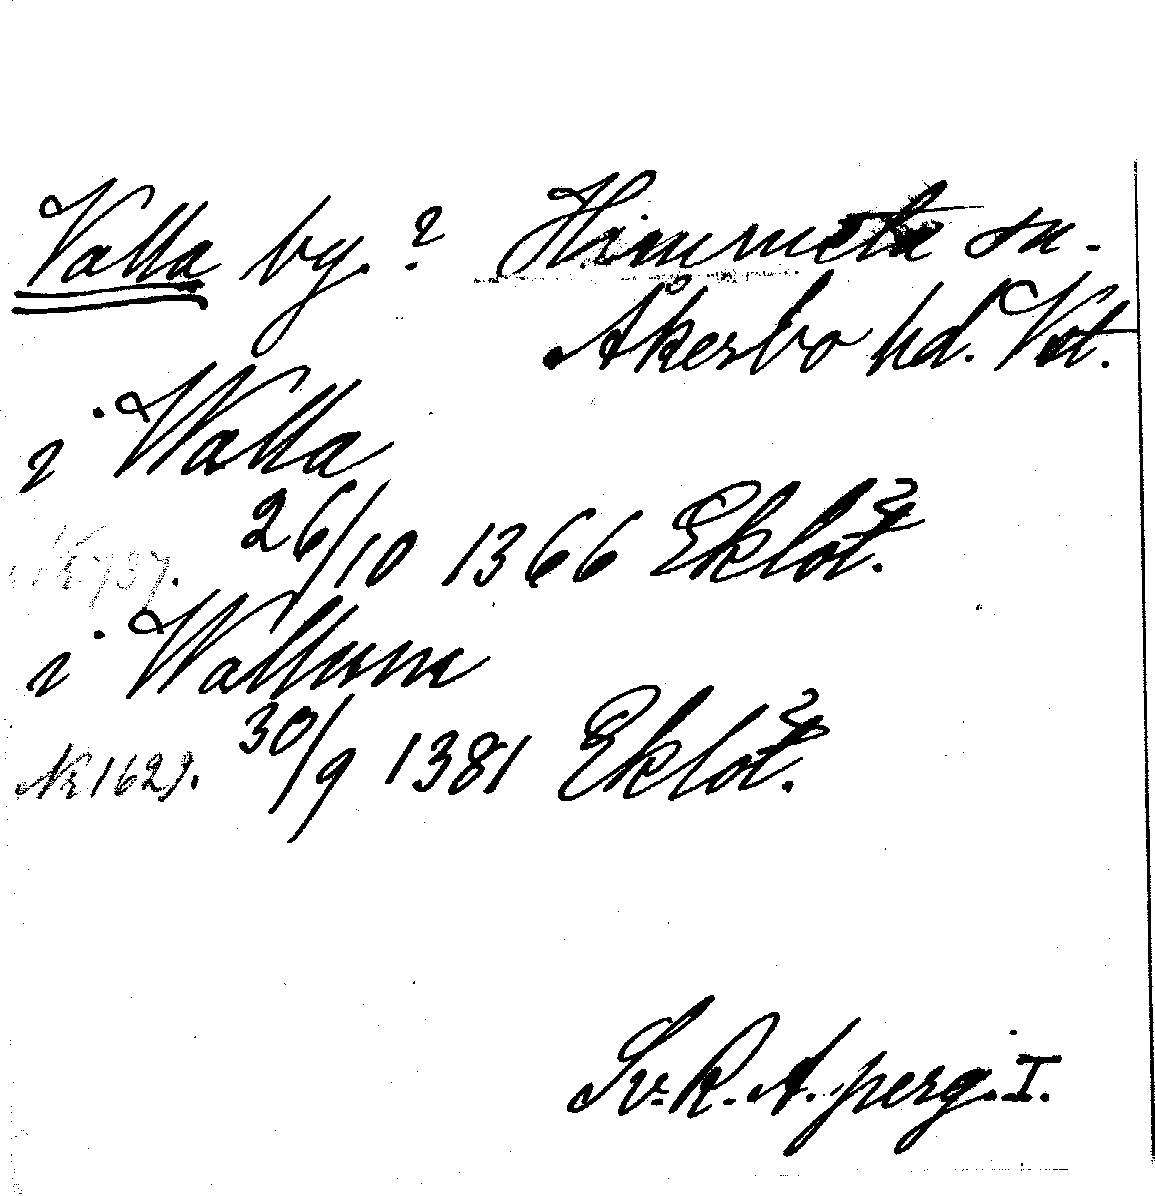 Valla by. ? Himmeta sn.
Åkerbo hd. Vst.
i Walla
26/10 1366 Eklöt.
i Wallum
№ 1629. 30/9 1381 Eklöt.
Sv. R. A. perg. I.